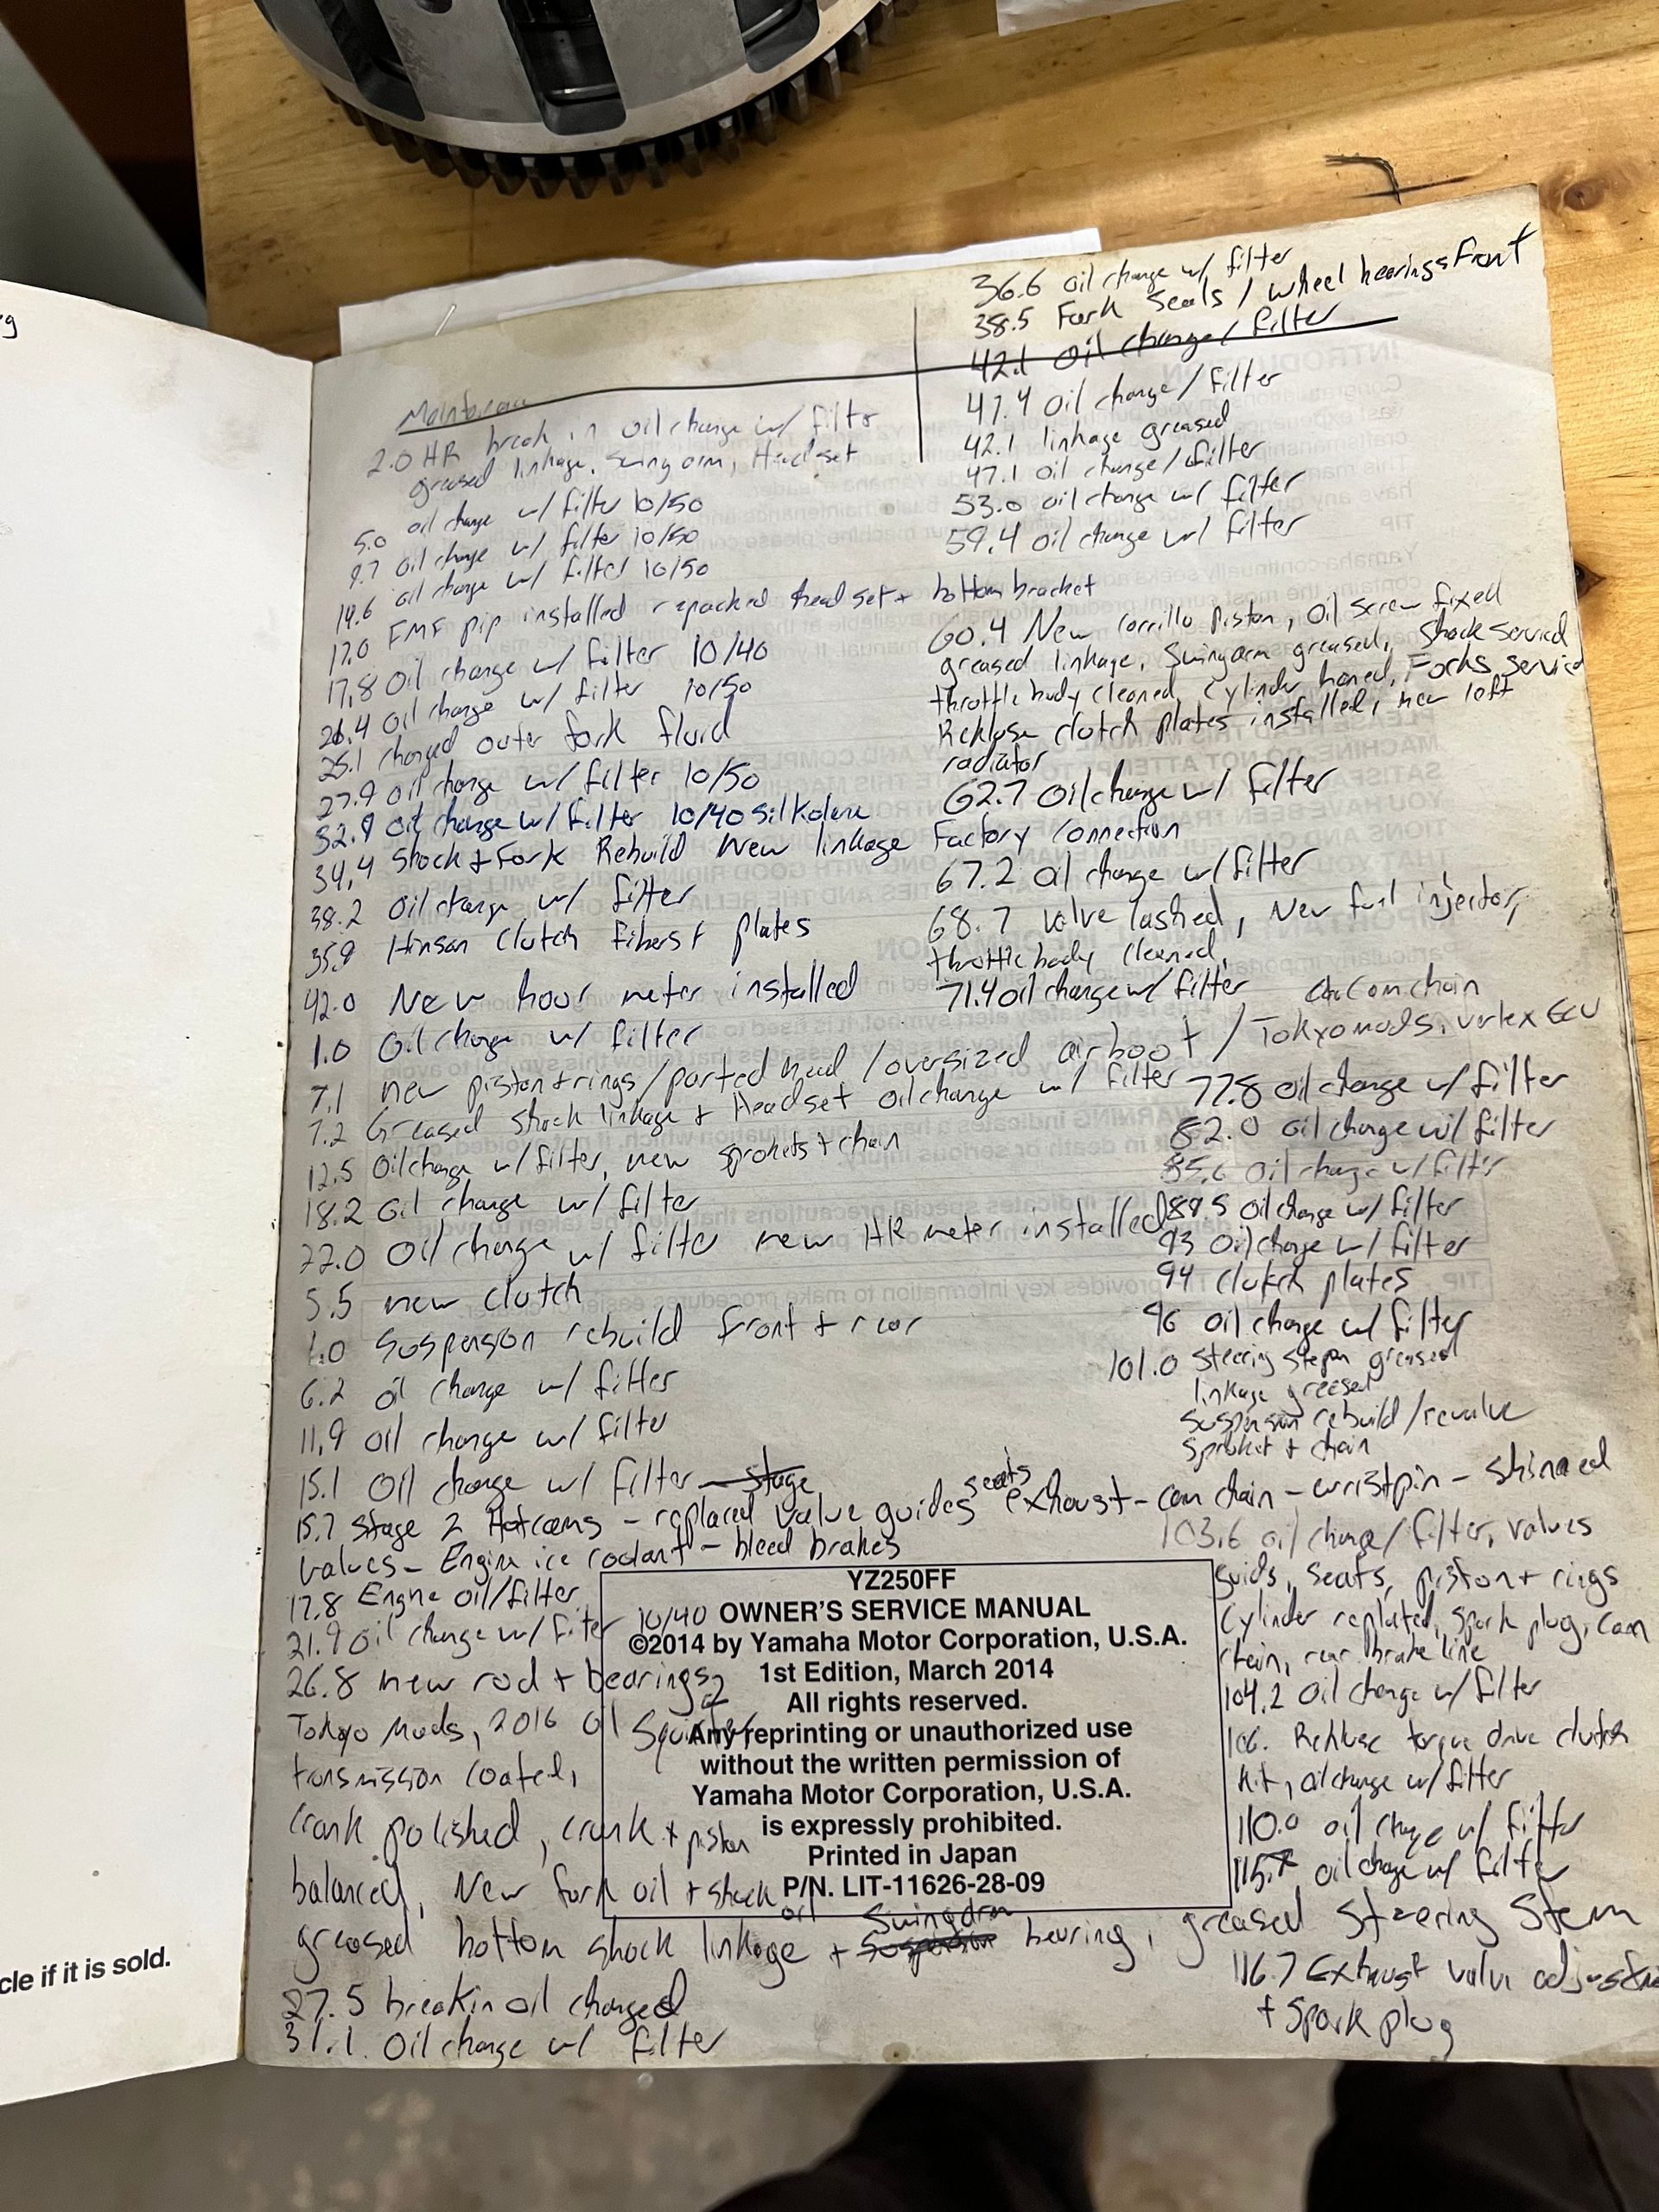 Maintenance
2.0 HR break in oil change w/ filter
greased linkage, swing arm, Headset
5.0 oil change w/ filter 10/50
9.7 oil change w/ filter 10/50
14.6 oil change w/ filter 10/50
17.0 FMF pip installed repacked head set + bottom bracket
17,8 Oil change w/ filter 10/40
20.4 Oil change w/ filter 10/50
25.1 changed outer fork fluid
27.9 Oil change w/ filter 10/50
32.9 Oil change w/ filter 10/40 Silkolene
34,4 Shock + Fork Rebuild New linkage Factory Connection
38.2 oil change w/ filter
35.9 Hinson Clutch fibers + plates
42.0 New hour meter installed
1.0 Oil change w/ filter
7.1 new piston+rings/ported head/oversized airboot/Tokyomods, vortex ECU
camchain
7.2 Greased shock linkage + Headset oil change w/ filter
12.5 Oilchange w/filter, new sprokets+chain
18.2 Oil change w/ filter
22.0 Oil change w/ filter new HR meter installed
5.5 new clutch
6.0 Suspension rebuild front + rear
6.2 oil change w/ filter
11,9 oil change w/ filter
15.1 Oil change w/ filter stage
15.7 Stage 2 Hotcams - replaced valve guides seats exhaust - cam chain - wristpin - shimmed
valves - Engine ice coolant - bleed brakes
17.8 Engine oil/filter
21.9 oil change w/ filter 10/40
26.8 new rod + bearings
Tokyo Mods, 2016 oil Squirter
transmission coated,
crank polished, crank + piston
balanced, New fork oil + shock oil
greased bottom shock linkage + Swingarm bearing, greased Steering Stem
27.5 breakin oil changed
31.1 Oil change w/ filter
36.6 oil change w/ filter
38.5 Fork Seals / wheel bearings Front
42.1 Oil change/ filter
47.4 Oil change/filter
42.1 linkage greased
47.1 oil change/filter
53.0 oil change w/ filter
59.4 oil change w/ filter
60.4 New Carrillo Piston, Oil screw fixed
greased linkage, Swingarm greased, Shock serviced
throttle body cleaned, Cylinder honed, Forks service
Rekluse clutch plates installed, new left
radiator
62.7 Oil change w/ filter
67.2 oil change w/filter
68.7 Valve lashed, New fuel injector,
throttle body cleaned,
71.4 oil change w/ filter
77.8 oil change w/ filter
82.0 oil change w/ filter
85.6 oil change w/ filter
89.5 Oil change w/ filter
93 Oil change w/ filter
94 Clutch plates
96 oil change w/ filter
101.0 Steering Stem greased
linkage greased
Suspension rebuild/revalve
Sproket + chain
103.6 oil change/filter, valves
guids, seats, piston + rings
Cylinder replated, Spark plug, cam
chain, rear brake line
104.2 Oil change w/ filter
106. Rekluse torque drive clutch
kit, oil change w/ filter
110.0 oil change w/ filter
115.7 oil change w/ filter
116.7 Exhaust valve
+ Spark plug
YZ250FF
OWNER'S SERVICE MANUAL
©2014 by Yamaha Motor Corporation, U.S.A.
1st Edition, March 2014
All rights reserved.
Any reprinting or unauthorized use
without the written permission of
Yamaha Motor Corporation, U.S.A.
is expressly prohibited.
Printed in Japan
P/N. LIT-11626-28-09
cle if it is sold.